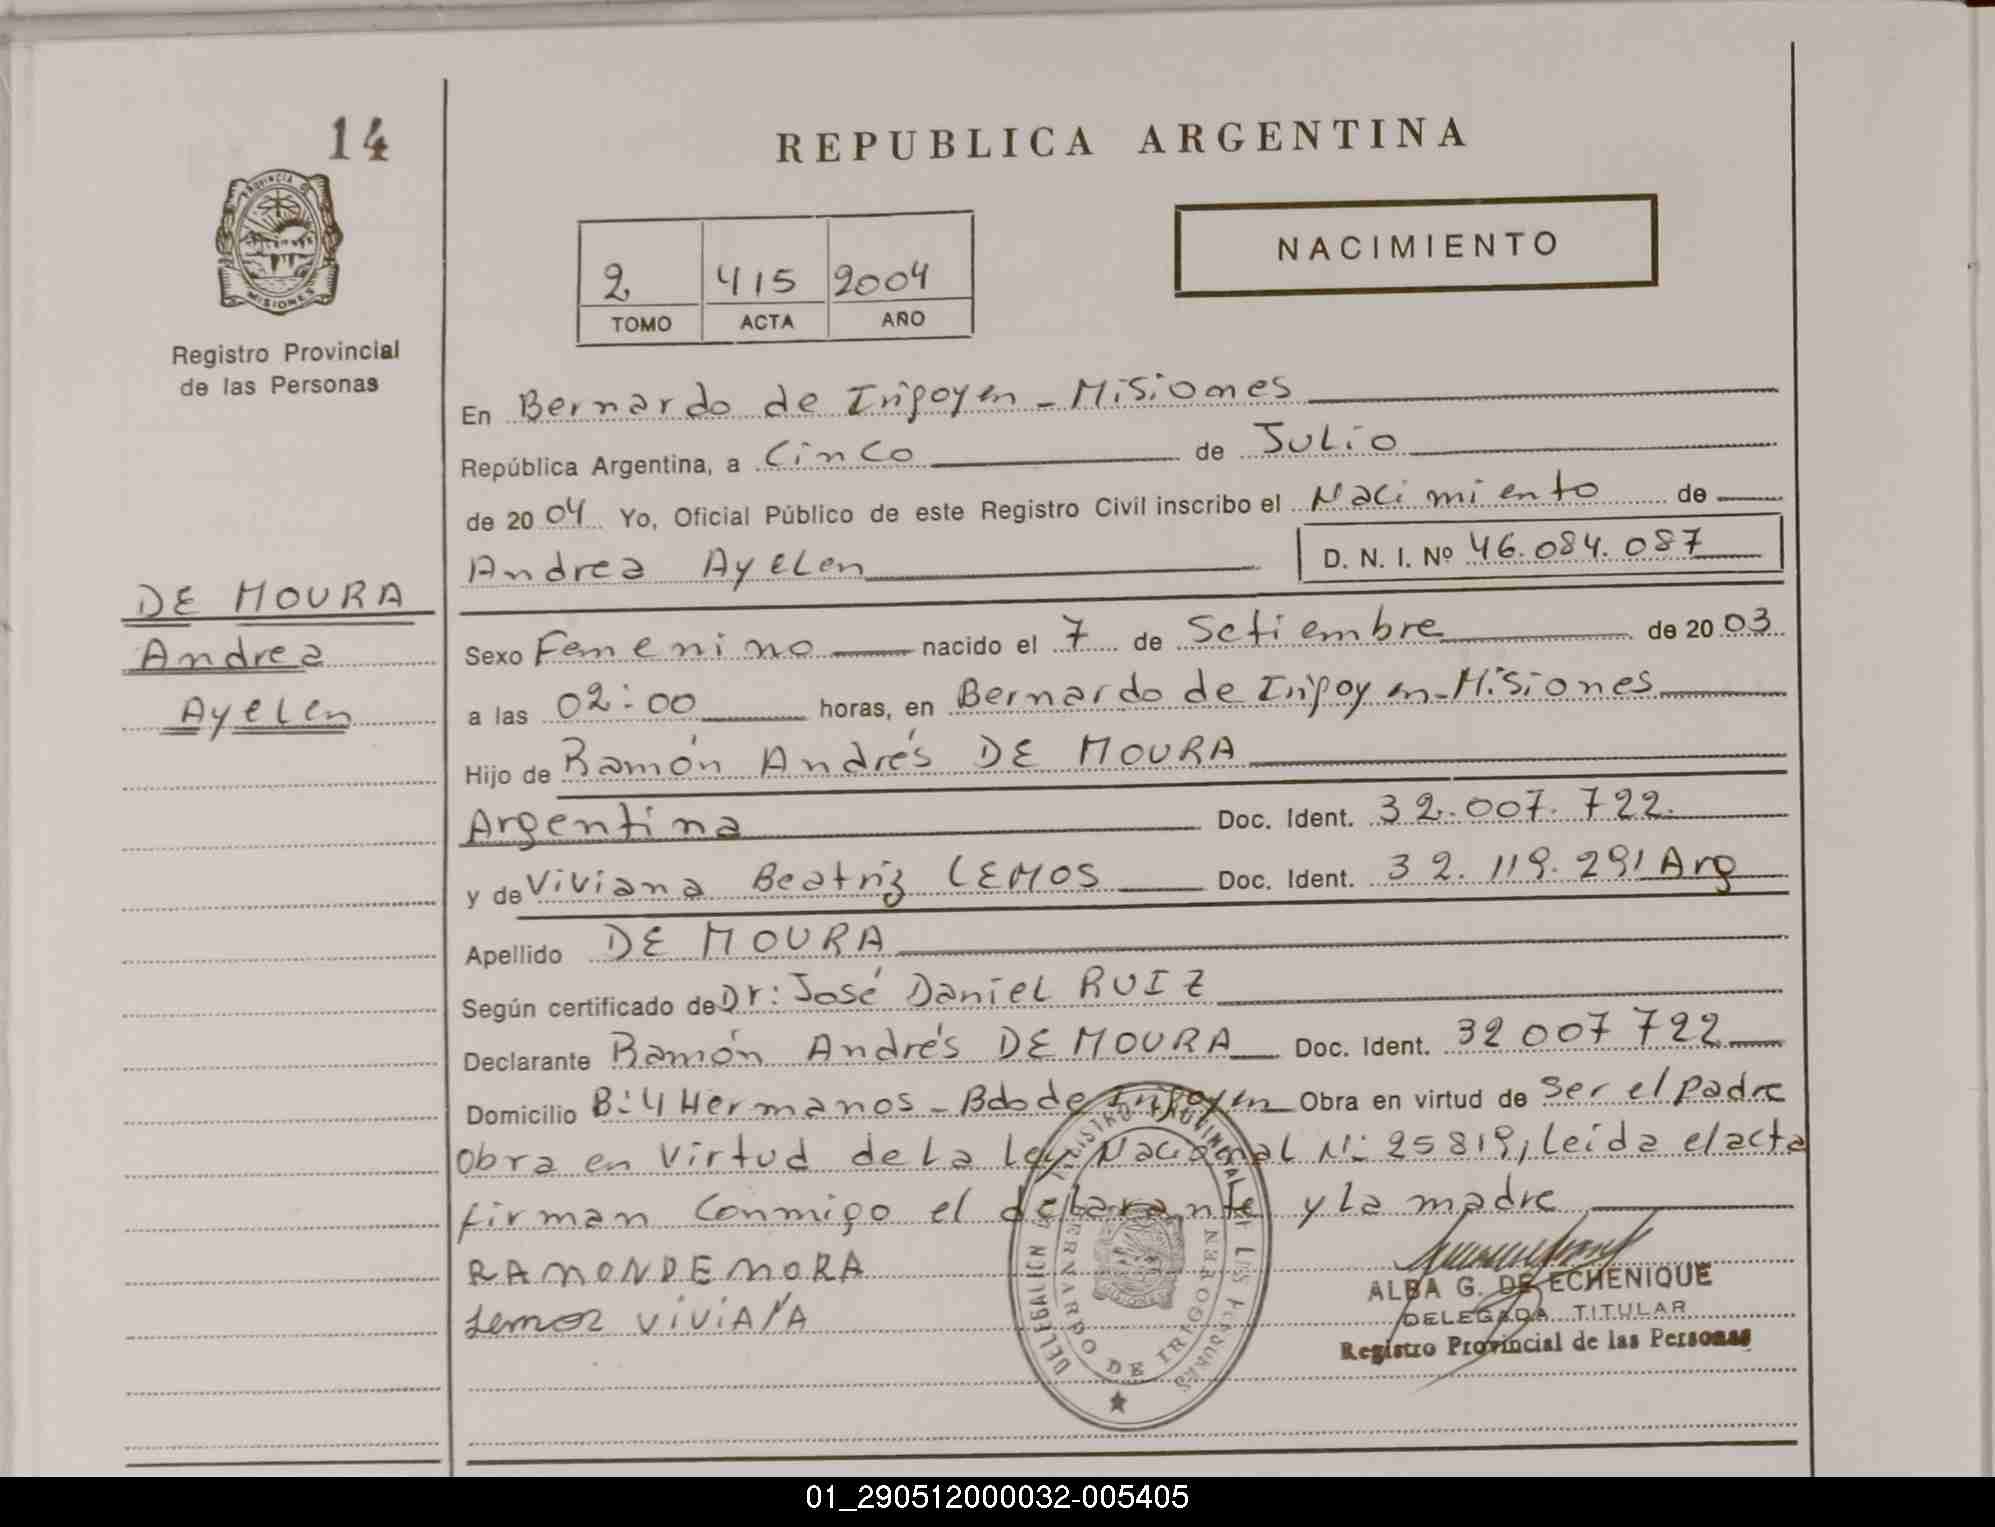 14
REPUBLICA ARGENTINA
PROVINCIA DE
MISIONES
NACIMIENTO
2 415 2004
TOMO ACTA AÑO
Registro Provincial
de las Personas
En Bernardo de Irigoyen - Misiones
República Argentina, a Cinco de Julio
de 2004 Yo, Oficial Público de este Registro Civil inscribo el Nacimiento de
Andrea Ayelen D. N. I. Nº 46.084.087
DE MOURA
Andrea
Ayelen
Sexo Femenino nacido el 7 de Setiembre de 2003
a las 02:00 horas, en Bernardo de Irigoyen-Misiones
Hijo de Ramón Andrés DE MOURA
Argentina Doc. Ident. 32.007.722.
y de Viviana Beatriz LEMOS Doc. Ident. 32.119.291 Arg
Apellido DE MOURA
Según certificado de Dr: José Daniel RUIZ
Declarante Ramón Andrés DE MOURA Doc. Ident. 32 007 722
Domicilio B: 4 Hermanos - Bdo de Irigoyen Obra en virtud de Ser el padre
Obra en Virtud de la ley Nacional N: 25819, Leída el acta
firman Conmigo el declarante y la madre
RAMON DE MORA
Lemos ViViANA
ALBA G. DE ECHENIQUE
DELEGADA TITULAR
Registro Provincial de las Personas
REGISTRO PROVINCIAL DE LAS PERSONAS
BERNARDO DE IRIGOYEN
01_290512000032-005405